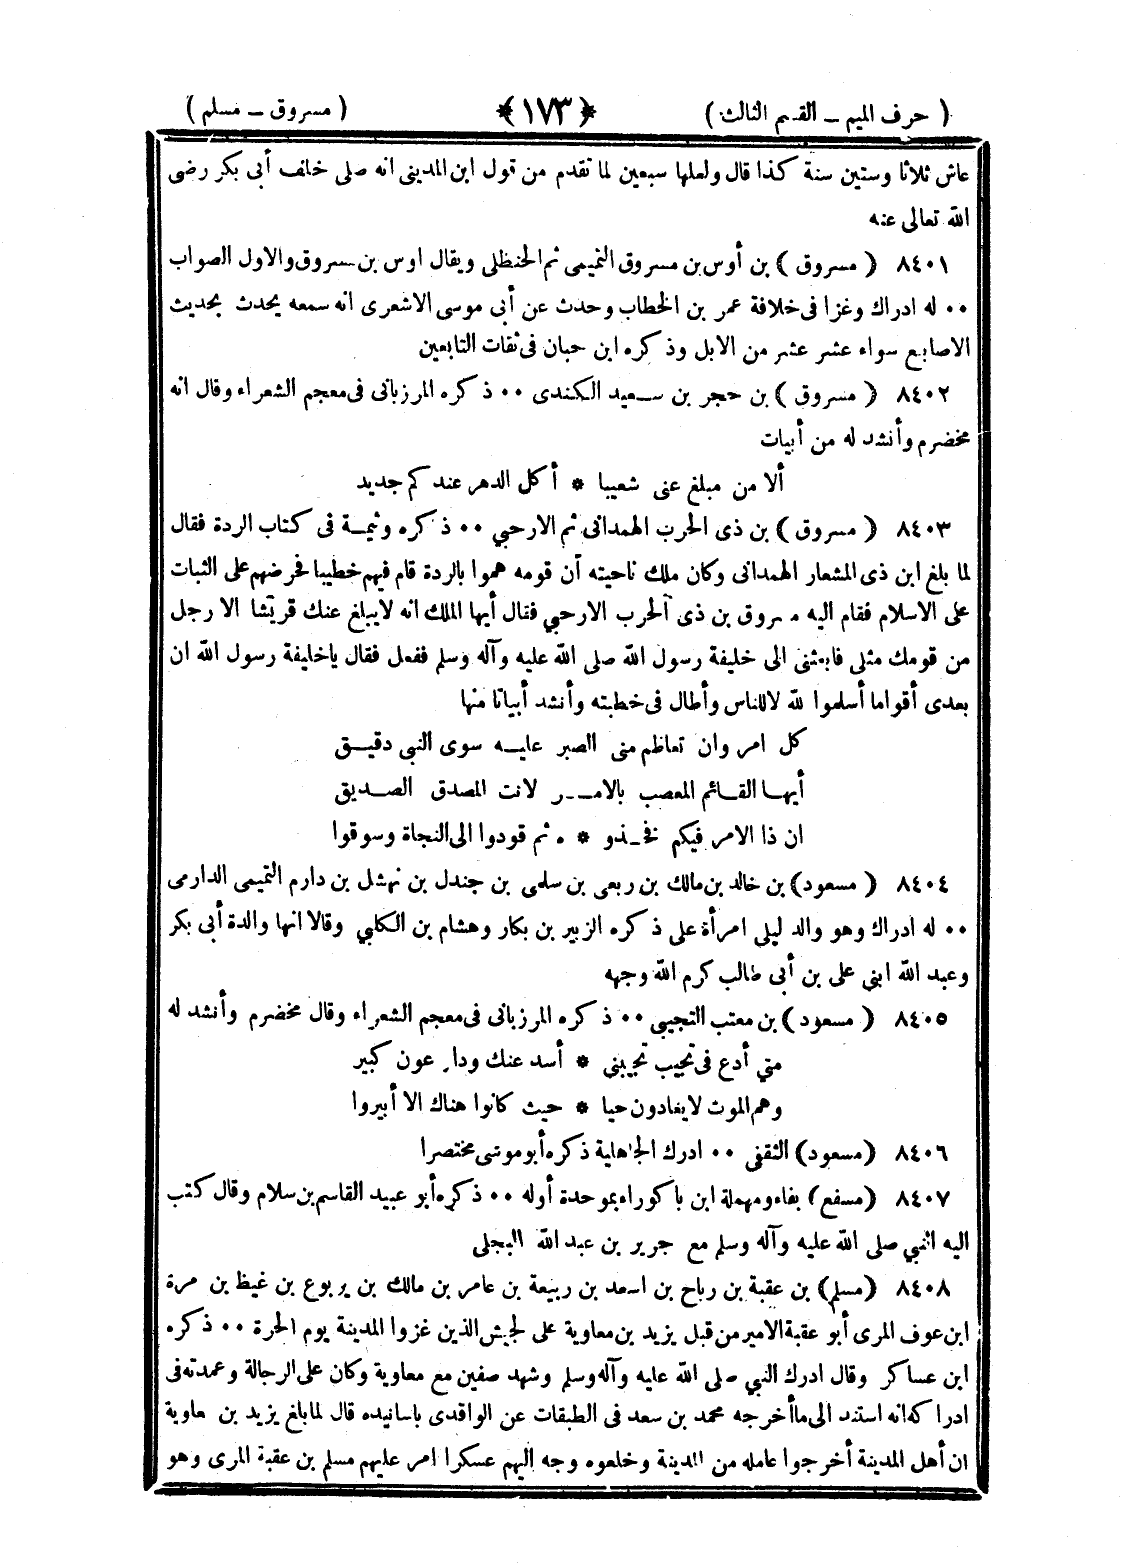 ( حرف الميم ــ القسم الثالث )
﴿ ١٧٣ ﴾
( مسروق ــ مسلم )
عاش ثلاثا وستين سنة كذا قال ولعلها سبعين لما تقدم من قول ابن المدينى انه صلى خلف أبى بكر رضى
الله تعالى عنه
٨٤٠١ ( مسروق ) بن أوس بن مسروق التميمى ثم الحنظلى ويقال اوس بن مسروق والاول الصواب
٠٠ له ادراك وغزا فى خلافة عمر بن الخطاب وحدث عن أبى موسى الاشعرى انه سمعه يحدث بحديث
الاصابع سواء عشر عشر من الابل وذكره ابن حبان فى ثقات التابعين
٨٤٠٢ ( مسروق ) بن حجر بن سعيد الكندى ٠٠ ذكره المرزبانى فى معجم الشعراء وقال انه
مخضرم وأنشد له من أبيات
ألا من مبلغ عنى شعيبا * أكل الدهر عندكم جديد
٨٤٠٣ ( مسروق ) بن ذى الحرب الهمدانى ثم الارحبي ٠٠ ذكره وثيمة فى كتاب الردة فقال
لما بلغ ابن ذى المشعار الهمدانى وكان ملك ناحيته أن قومه هموا بالردة قام فيهم خطيبا فحرضهم على الثبات
على الاسلام فقام اليه مسروق بن ذى الحرب الارحبي فقال أيها الملك انه لايبلغ عنك قريشا الا رجل
من قومك مثلى فابعثنى الى خليفة رسول الله صلى الله عليه وآله وسلم ففعل فقال ياخليفة رسول الله ان
بعدى أقواما أسلموا لله لاللناس وأطال فى خطبته وأنشد أبياتا منها
كل امر وان تعاظم منى الصبر عليه سوى النبى دقيق
أيها القائم المعصب بالامر لانت المصدق الصديق
ان ذا الامر فيكم فخذو * ه ثم قودوا الى النجاة وسوقوا
٨٤٠٤ ( مسعود) بن خالد بن مالك بن ربعى بن سلمى بن جندل بن نهشل بن دارم التميمى الدارمى
٠٠ له ادراك وهو والد ليلى امرأة على ذكره الزبير بن بكار وهشام بن الكلبي وقالا انها والدة أبى بكر
وعبد الله ابني على بن أبى طالب كرم الله وجهه
٨٤٠٥ ( مسعود ) بن معتب التجيبي ٠٠ ذكره المرزبانى فى معجم الشعراء وقال مخضرم وأنشد له
متي أدع فى تجيب تجبنى * أسد عنك ودار عون كبير
وهم الموت لايغادون حيا * حيث كانوا هناك الا أبيروا
٨٤٠٦ (مسعود) الثقفى ٠٠ ادرك الجاهلية ذكره أبو موسى مختصرا
٨٤٠٧ (مسفع) بفاء ومهملة ابن باكوراء بموحدة أوله ٠٠ ذكره أبو عبيد القاسم بن سلام وقال كتب
اليه النبي صلى الله عليه وآله وسلم مع جرير بن عبد الله البجلى
٨٤٠٨ (مسلم) بن عقبة بن رباح بن اسعد بن ربيعة بن عامر بن مالك بن يربوع بن غيظ بن مرة
ابن عوف المرى أبو عقبة الامير من قبل يزيد بن معاوية على لجيش الذين غزوا المدينة يوم الحرة ٠٠ ذكره
ابن عساكر وقال ادرك النبي صلى الله عليه وآله وسلم وشهد صفين مع معاوية وكان على الرجالة وعمدته فى
ادراكه انه استند الى ماأخرجه محمد بن سعد فى الطبقات عن الواقدى باسانيده قال لما بلغ يزيد بن معاوية
ان أهل المدينة أخرجوا عامله من المدينة وخلعوه وجه اليهم عسكرا امر عليهم مسلم بن عقبة المرى وهو